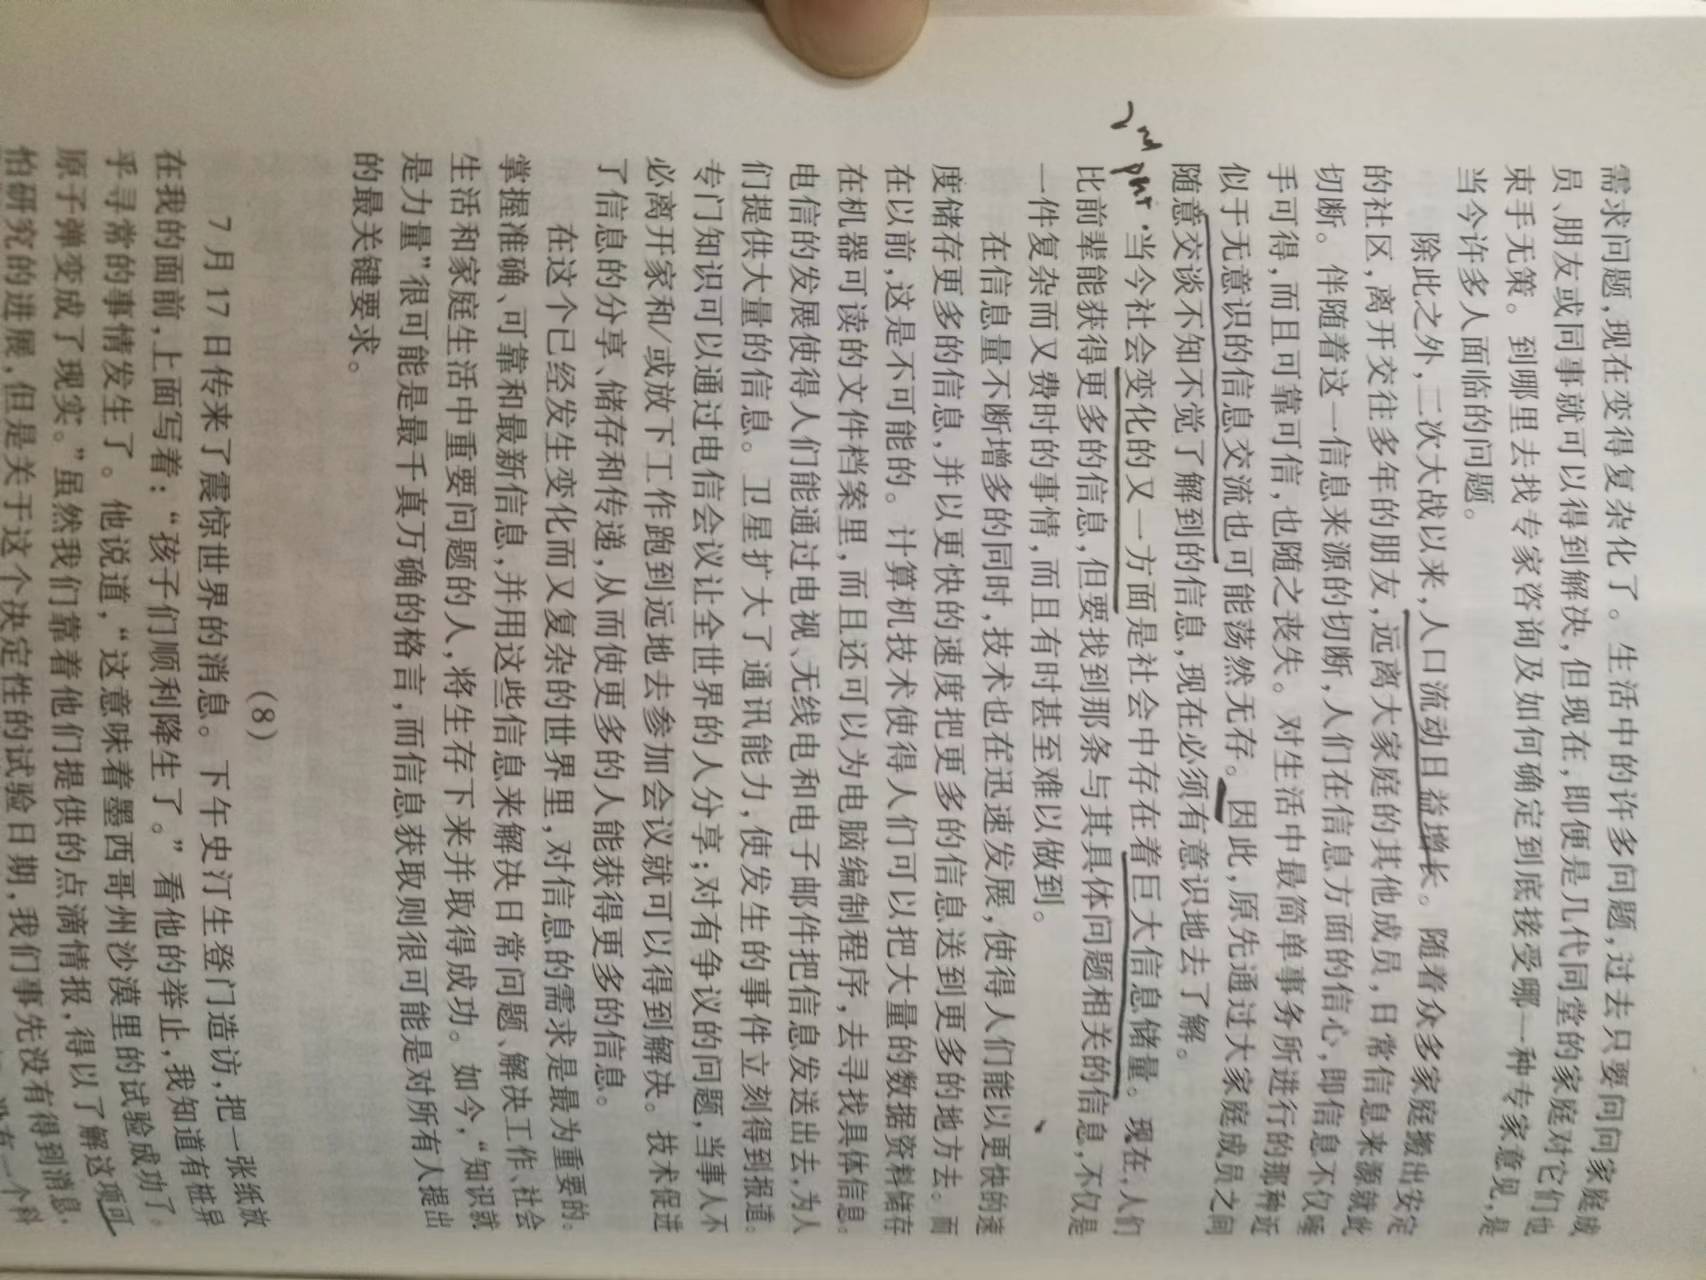 需求问题,现在变得复杂化了。生活中的许多问题,过去只要问问家庭成
员、朋友或同事就可以得到解决,但现在,即便是几代同堂的家庭对它们也
束手无策。到哪里去找专家咨询及如何确定到底接受哪一种专家意见,是
当今许多人面临的问题。
除此之外,二次大战以来,人口流动日益增长。随着众多家庭搬出安定
的社区,离开交往多年的朋友,远离大家庭的其他成员,日常信息来源就此
切断。伴随着这一信息来源的切断,人们在信息方面的信心,即信息不仅唾
手可得,而且可靠可信,也随之丧失。对生活中最简单事务所进行的那种近
似于无意识的信息交流也可能荡然无存。因此,原先通过大家庭成员之间
随意交谈不知不觉了解到的信息,现在必须有意识地去了解。
2nd part.
当今社会变化的又一方面是社会中存在着巨大信息储量。现在,人们
比前辈能获得更多的信息,但要找到那条与其具体问题相关的信息,不仅是
一件复杂而又费时的事情,而且有时甚至难以做到。
在信息量不断增多的同时,技术也在迅速发展,使得人们能以更快的速
度储存更多的信息,并以更快的速度把更多的信息送到更多的地方去。而
在以前,这是不可能的。计算机技术使得人们可以把大量的数据资料储存
在机器可读的文件档案里,而且还可以为电脑编制程序,去寻找具体信息。
电信的发展使得人们能通过电视、无线电和电子邮件把信息发送出去,为人
们提供大量的信息。卫星扩大了通讯能力,使发生的事件立刻得到报道。
专门知识可以通过电信会议让全世界的人分享;对有争议的问题,当事人不
必离开家和/或放下工作跑到远地去参加会议就可以得到解决。技术促进
了信息的分享、储存和传递,从而使更多的人能获得更多的信息。
在这个已经发生变化而又复杂的世界里,对信息的需求是最为重要的。
掌握准确、可靠和最新信息,并用这些信息来解决日常问题、解决工作、社会
生活和家庭生活中重要问题的人,将生存下来并取得成功。如今,“知识就
是力量”很可能是最千真万确的格言,而信息获取则很可能是对所有人提出
的最关键要求。
(8)
7月17日传来了震惊世界的消息。下午史汀生登门造访,把一张纸放
在我的面前,上面写着:“孩子们顺利降生了。”看他的举止,我知道有桩异
乎寻常的事情发生了。他说道,“这意味着墨西哥州沙漠里的试验成功了。
原子弹变成了现实。”虽然我们靠着他们提供的点滴情报,得以了解这项可
怕研究的进展,但是关于这个决定性的试验日期,我们事先没有得到消息,